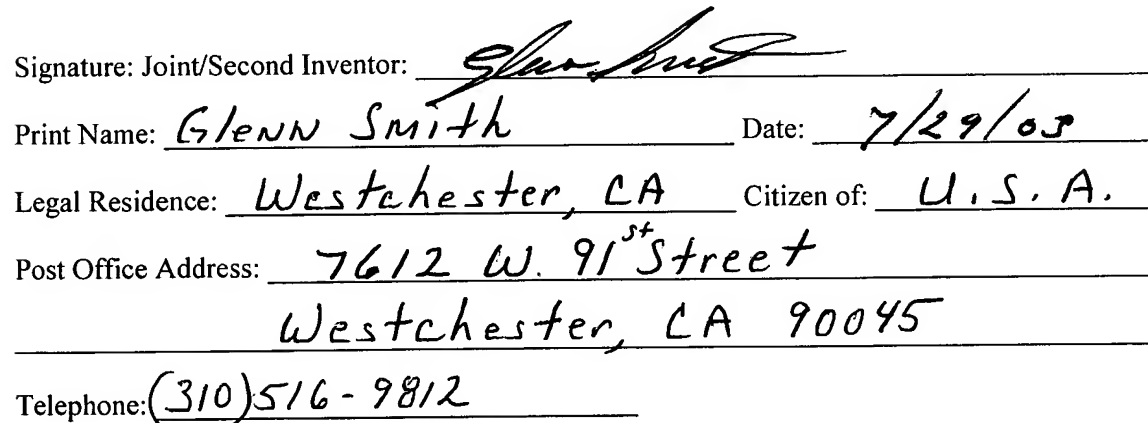 Signature: Joint/Second Inventor: Glenn Smith
Print Name: Glenn Smith Date: 7/29/03
Legal Residence: Westchester, CA Citizen of: U.S.A.
Post Office Address: 7612 W. 91st Street
Westchester, CA 90045
Telephone: (310)516-9812